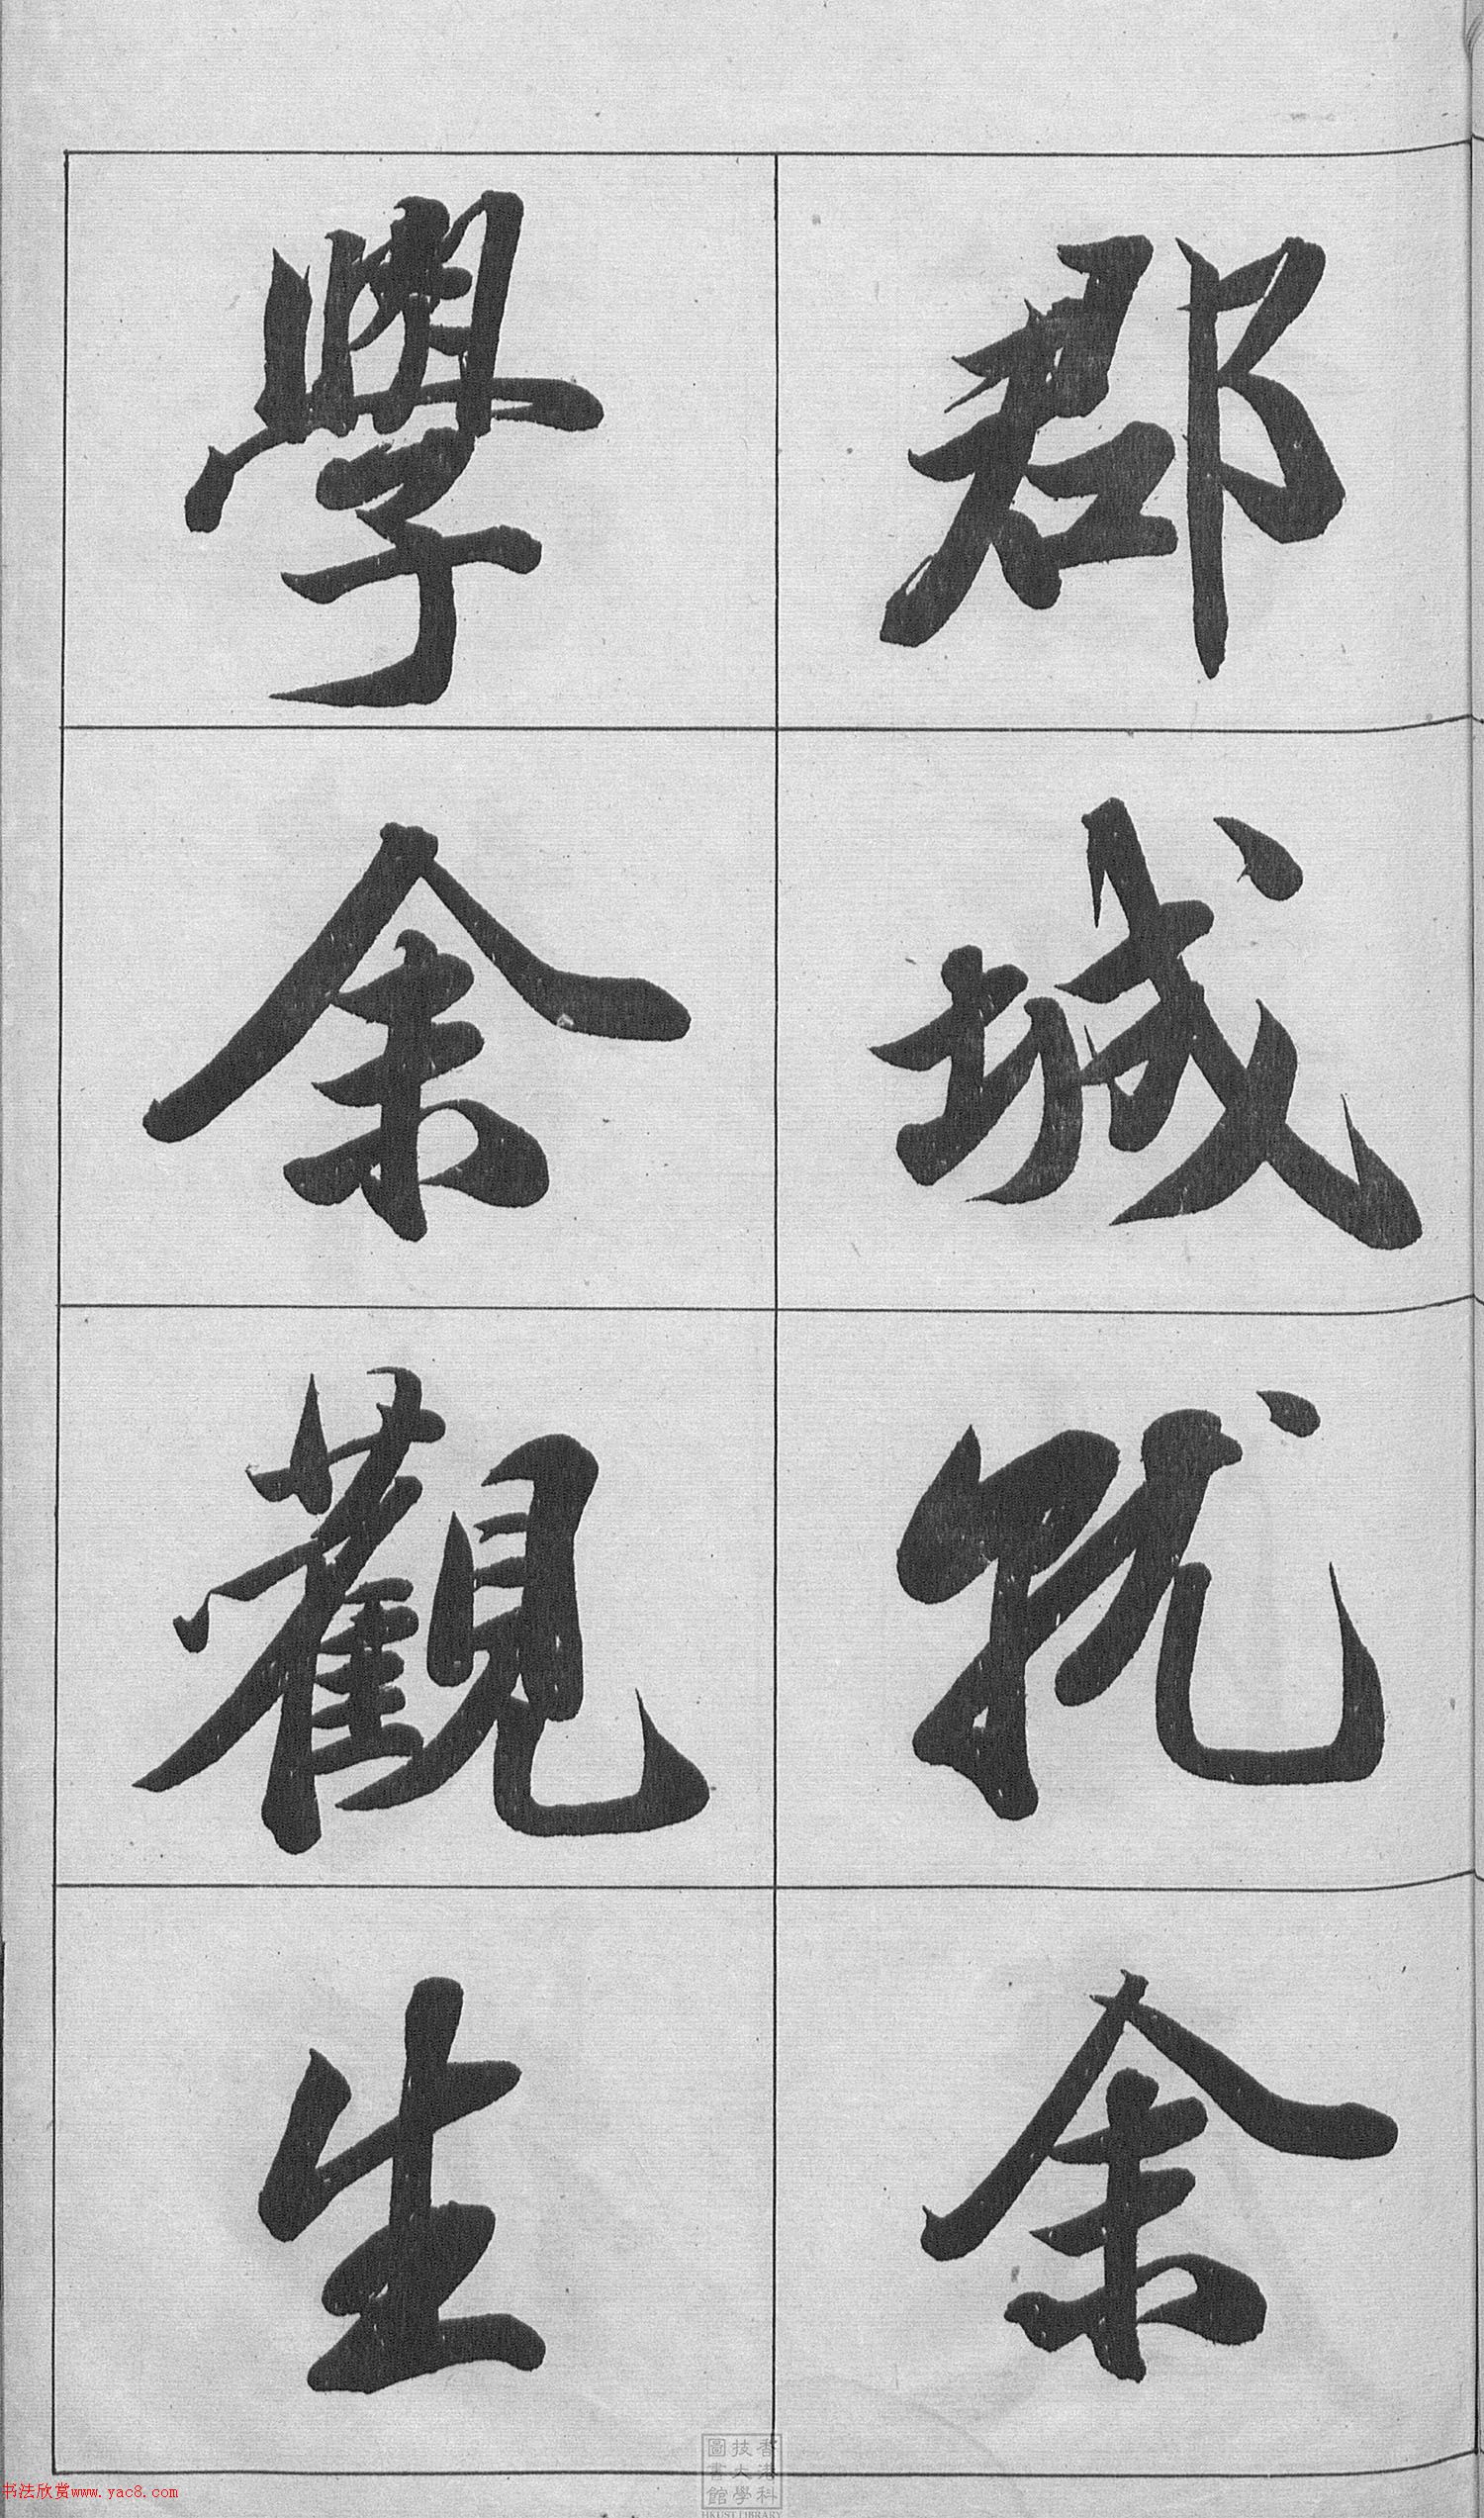 郡城就余
學余觀生
香港科
技大學
圖書館
HKUST LIBRARY
书法欣赏www.yac8.com